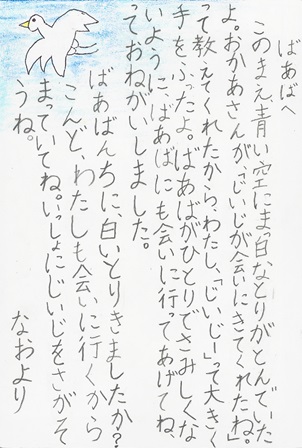 ばあばへ
このまえ、青い空にまっ白なとりがとんでいた
よ。おかあさんが、「じいじが会いにきてくれたね。」
って教えてくれたから、わたし、「じいじー」って大きく
手をふったよ。ばあばがひとりでさみしくな
いように、ばあばにも会いに行ってあげてね
っておねがいしました。
ばあばんちに、白いとりきましたか?
こんど、わたしも会いに行くから
まっていてね。いっしょにじいじをさがそ
うね。
なおより